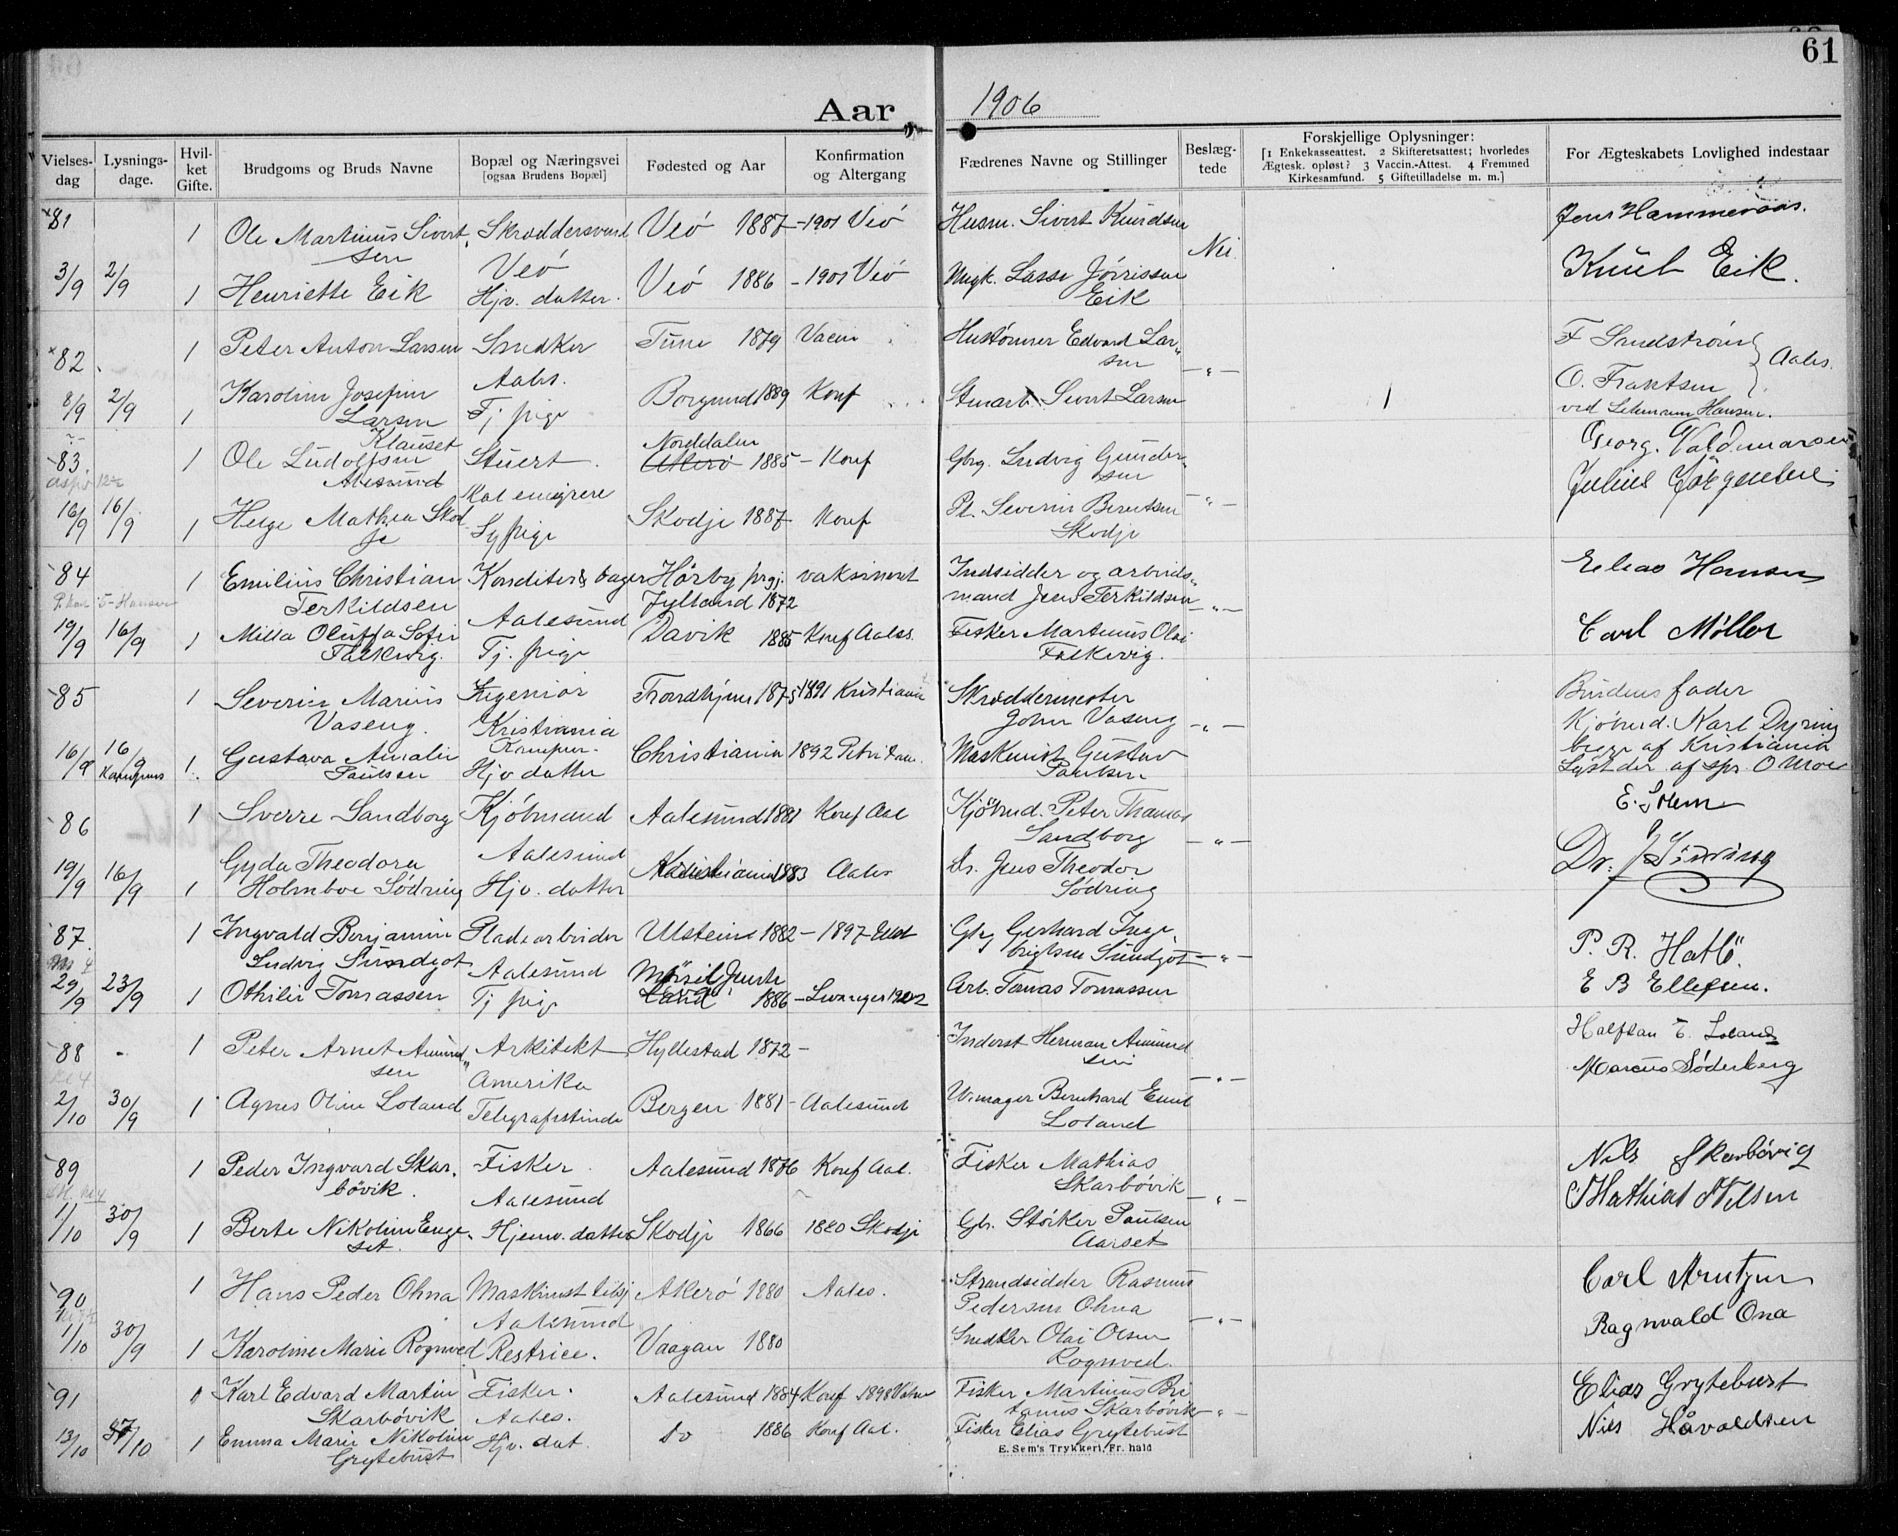 61
Aar 1906
Vielses-dag
Lysnings-dage.
Hvil-ket Gifte.
Brudgoms og Bruds Navne
Bopæl og Næringsvei [ogsaa Brudens Bopæl]
Fødested og Aar
Konfirmation og Altergang
Fædrenes Navne og Stillinger
Beslæg-tede
Forskjellige Oplysninger:
[1 Enkekasseattest. 2 Skifteretsattest; hvorledes
Ægtesk. opløst? 3 Vaccin.-Attest. 4 Fremmed
Kirkesamfund. 5 Giftetilladelse m. m.]
For Ægteskabets Lovlighed indestaar
81 1 Ole Martinus Sivert- Skræddersvend Veö 1887 - 1901 Veö Husm. Sivert Knudsen Jens Hammeraas.
sen Veö Nei
3/9 2/9 1 Henriette Eik Hjv. datter. Veö 1886 - 1901 Veö Lasse Jöirissen Knut Eik.
Eik
82 1 Peter Anton Larsen Snedker Tune 1879 Vaccin Edvard Lar- F Sandstrøm
Aales. sen -"- Aales.
8/9 2/9 1 Karoline Josefine Tj. pige Borgund 1889 Konf Sivert Larsen 1 O. Frantsen
Larsen ved Lehmann Hansen.
83. 1 Ole Ludolfsen Klauset Stuert. Norddalen 1885 - Konf Gbrg. Ludvig Gunder- Georg. Valdemarsen
Alesund sen Julius Jörgensen
Skal emigrere
16/9 16/9 1 Helge Mathea Skod- Sypige Skodje 1887 Konf Pl. Severin Berntsen -"-
je Skodje
84 1 Emilius Christian Konditor & bager Hørby prgj. vaksineret Indsidder og arbeids- Elias Hansen
Terkildsen Aalesund Jylland 1872 mand Jens Terkildsen -"-
19/9 16/9 1 Milla Oluffa Sofie Tj. pige Davik 1885 Konf Aales. Fisker Martinus Olai Carl Møller
Falkevig. Falkevig.
85 1 Severin Marius Ingeniör Trondhjem 1875 1891 Kristiania Skræddermester Brudens fader
Vaseng. Kristiania John Vaseng -"- Kjöbmd. Karl Dyring
Kampen. begge af Kristiania
16/9 16/9 Kampens 1 Gustava Amalie Hjv datter Christiania 1892 Maskinist Gustav Lyst der af spr. O Moe
Paulsen Paulsen
86 1 Sverre Sandborg Kjöbmand Aalesund 1881 Konf Aal Kjöbmd. Peter Thomas E. Solem
Aalesund Sandborg -"-
19/9 16/9 1 Gyda Theodora Hjv. datter Kristiania 1883 Aales Dr. Jens Theodor Dr. J Södring
Holmboe Södring Södring
87. 1 Ingvald Benjamin Pladsarbeider Ulstein 1882 - 1897 Gbrg Gerhard Inge- P. R. Hatlö.
Ludvig Sundgot Aalesund brigtsen Sundgot -"-
29/9 23/9 1 Othilie Tomassen Tj pige 1886 - Levanger 1902 Arb. Tomas Tomassen E B Ellefsen.
88 1 Peter Arnet Amund- Arkitekt Hyllestad 1872 - Inderst Herman Amund- Halfdan E. Loland
sen Amerika sen -"- Marcus Söderberg
2/10 30/9 1 Agnes Oline Loland Telegrafistinde Bergen 1881 - Aalesund Urmager Bernhard Emil
Loland
89 1 Peder Ingvard Skar- Fisker Aalesund 1876 Konf Aal. Fisker Mathias Nils Skarbövig
bövik. Aalesund Skarbövik -"- Mathias Nilsen
1/10 30/9 1 Berte Nikoline Enge- Hjemv. datter Skodje 1866 1880 Skodje Gb. Störker Paulsen
set. Aarset
90 1 Hans Peder Ohna Maskinist Akerö 1880 Aales. Strandsidder Rasmus Carl Arntzen
Aalesund Pedersen Ohna -"- Ragnvald Ona
1/10 30/9 1 Karoline Marie Rognved Restrice. Vaagan 1880 Snedker Olai Olsen
Rognved.
91 1 Karl Edvard Martin Fisker. Aalesund 1884 Konf 1898 Fisker Martinus Bri- Elias Grytebust
Skarbövik Aales. tanus Skarbövik -"-
13/10 1 Emma Marie Nikoline Hjv. dat. Do 1886 Konf Aal. Fisker Elias Grytebust Nils Håvaldsen
Grytebust
E. Sem's Trykkeri, Fr. hald